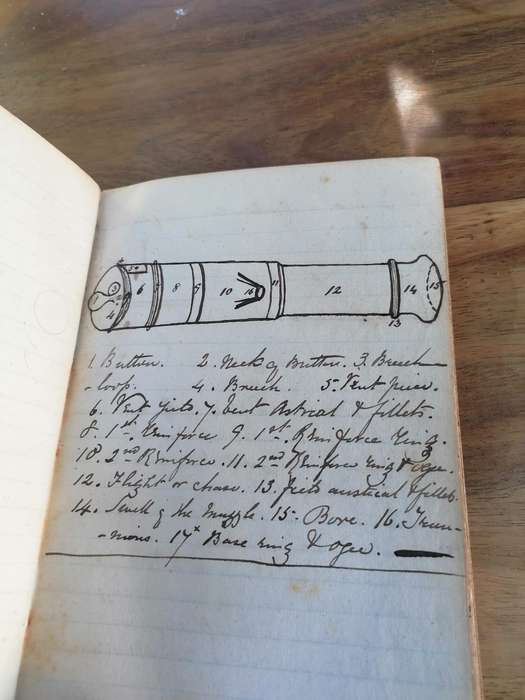 5 6 7 8 9 10 16 11 12 14 15
3
4
13
1. Button. 2. Neck of Button. 3. Breech
-loop. 4. Breech. 5. Vent piece.
6. Vent field. 7. Vent Astrical & fillets.
8. 1st Reinforce 9. 1st Reinforce ring.
10. 2nd Reinforce. 11. 2nd Reinforce ring & ogee.
12. Flight or chase. 13. astrical & fillets.
14. Swell of the Muzzle. 15. Bore. 16. Trun-
-nions. 17x Base ring & ogee.